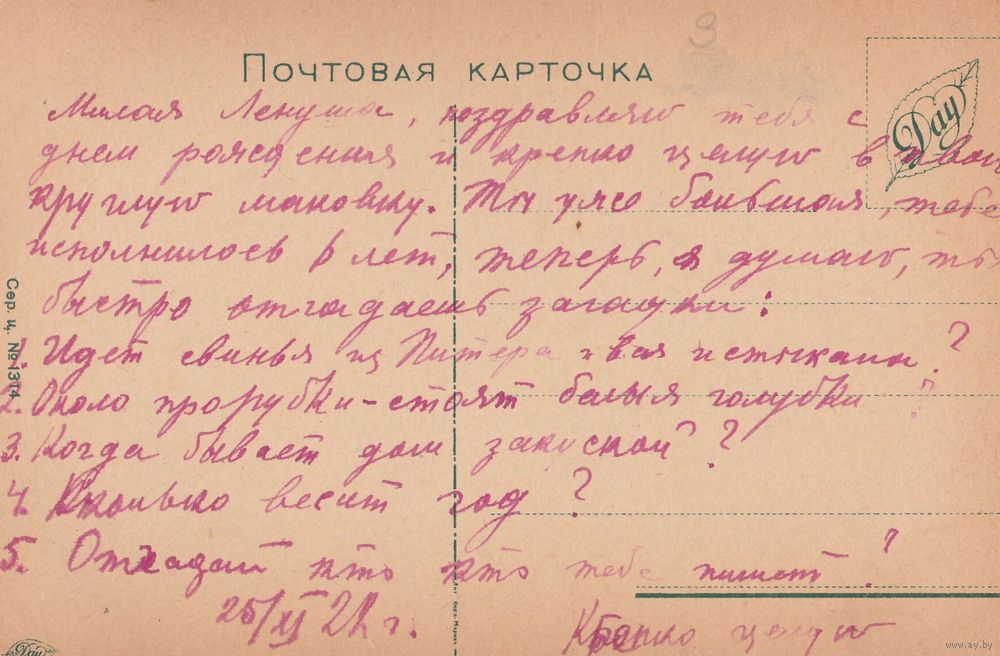 ПОЧТОВАЯ КАРТОЧКА
Милая Ленуша, поздравляю тебя с
днем рождения и крепко целую в твою
круглую маковку. Ты уже большая, тебе
исполнилось 6 лет, теперь, я думаю, ты
быстро отгадаешь загадки:
1. Идет свинья из Питера вся истыкана?
2. Около прорубки – стоят белыя голубки?
3. Когда бывает дом закуской?
4. Сколько весит год?
5. Отгадай кто кто тебе пишет?
25/XI г.
Крепко целую
Day
Day
Сер. ц. № 1314
www.ay.by